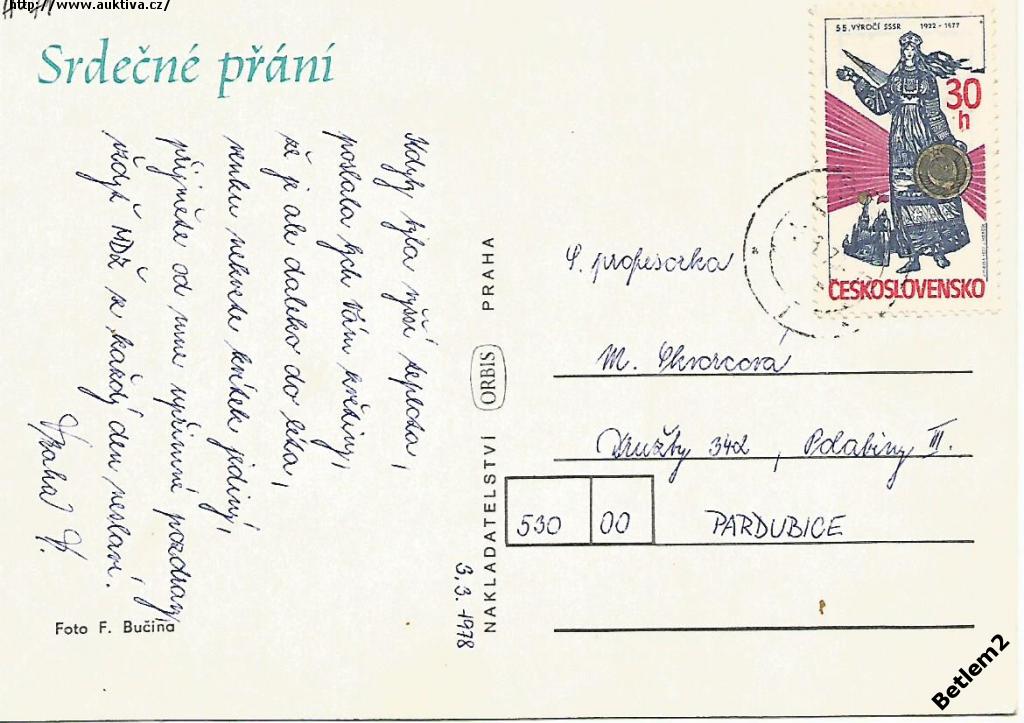 http://www.auktiva.cz/
Srdečné přání
Kdyby byla vyšší teplota,
poslala bych Vám květiny,
že je ale daleko do léta,
venku nekvete kvítek jediný,
přijměte ode mne upřímné pozdravy,
vždyť MDŽ se každý den neslaví.
V.
Foto F. Bučina
3.3.1978
NAKLADATELSTVÍ ORBIS PRAHA
55. VÝROČÍ SSSR 1922-1977
30 h
ČESKOSLOVENSKO
S. profesorka
M. Skvorcová
Družby 342, Polabiny III.
530 00 PARDUBICE
Betlem2